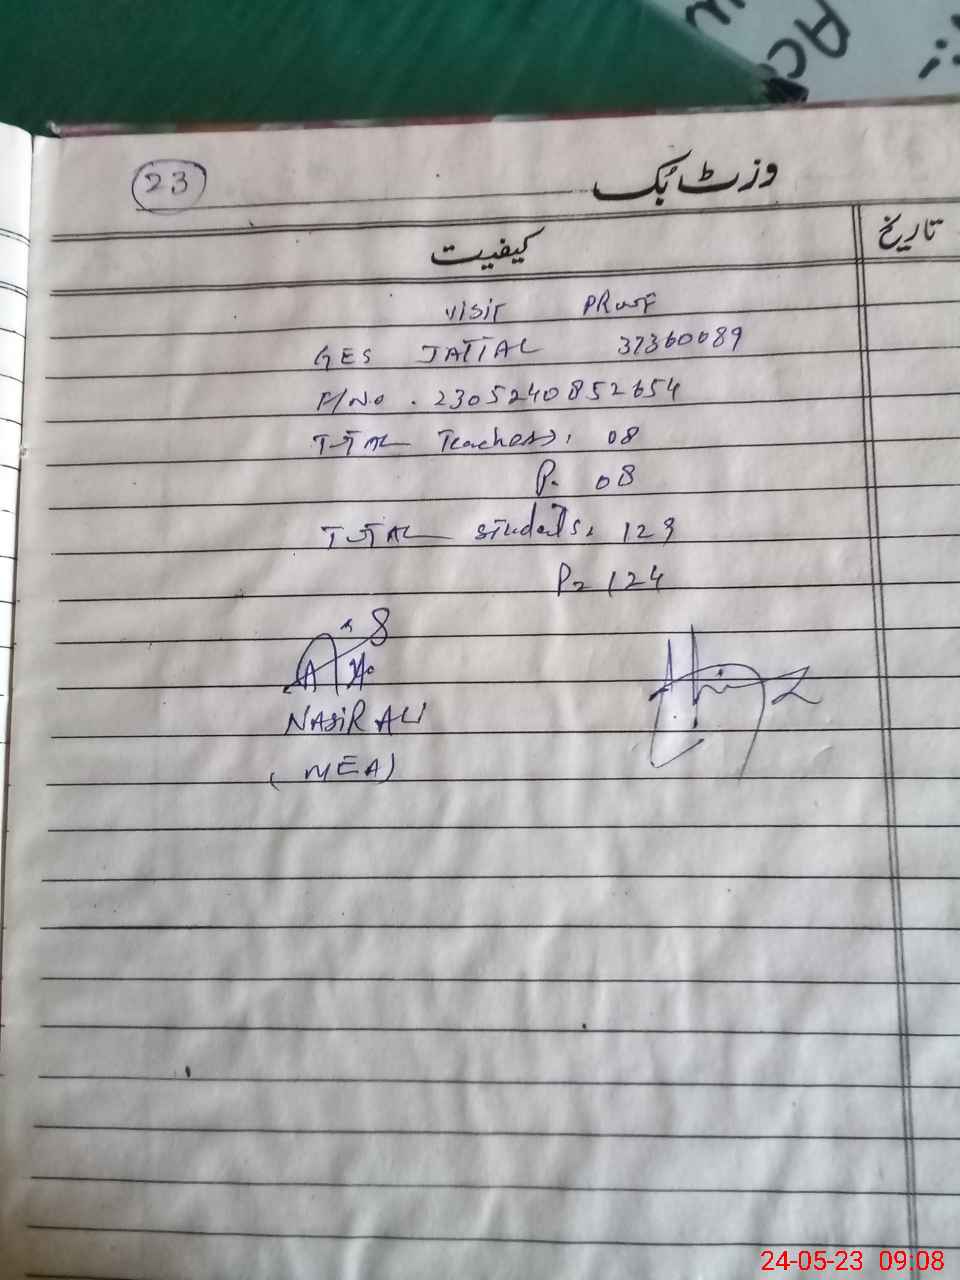 23
وزٹ بُک
تاریخ
کیفیت
VISIT PROOF
GES JATTAL 37360089
F/No. 2305240852654
TOTAL Teachers: 08
P. 08
TOTAL Students: 129
P= 124
NASIR ALI
(MEA)
24-05-23 09:08